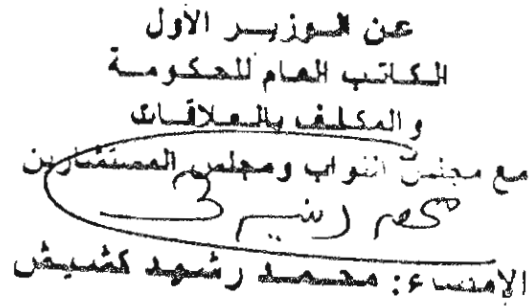 عن الوزير الأول
الكاتب العام للحكومة
والمكلف بالعلاقات
مع مجلس النواب ومجلس المستشارين
محمد رشيد
الإمضاء: محمد رشيد كشيش